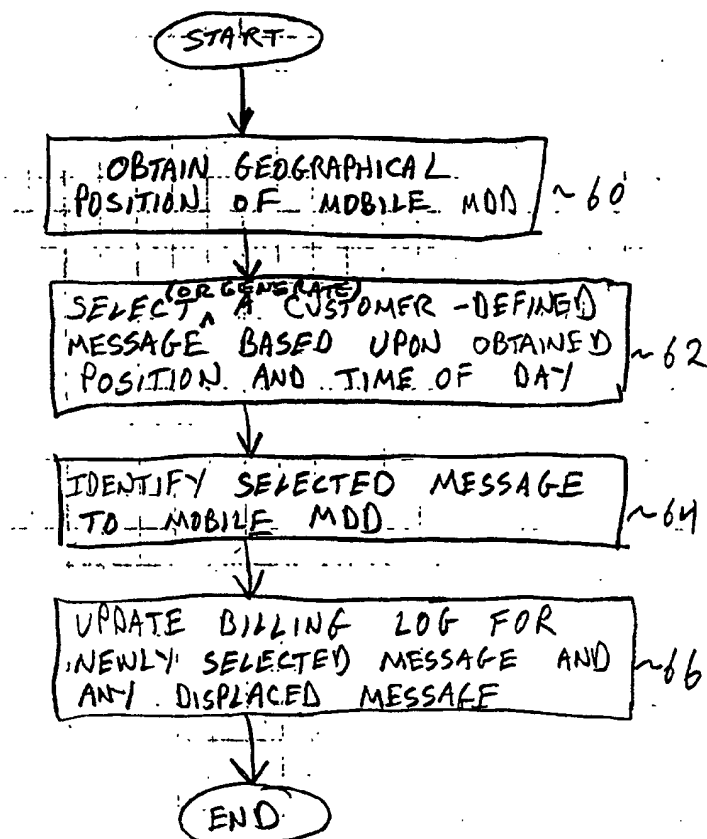 START
OBTAIN GEOGRAPHICAL
POSITION OF MOBILE MDD ~60
(OR GENERATE)
SELECT ^ A CUSTOMER-DEFINED
MESSAGE BASED UPON OBTAINED ~62
POSITION AND TIME OF DAY
IDENTIFY SELECTED MESSAGE
TO MOBILE MDD ~64
UPDATE BILLING LOG FOR
NEWLY SELECTED MESSAGE AND ~66
ANY DISPLACED MESSAGE
END